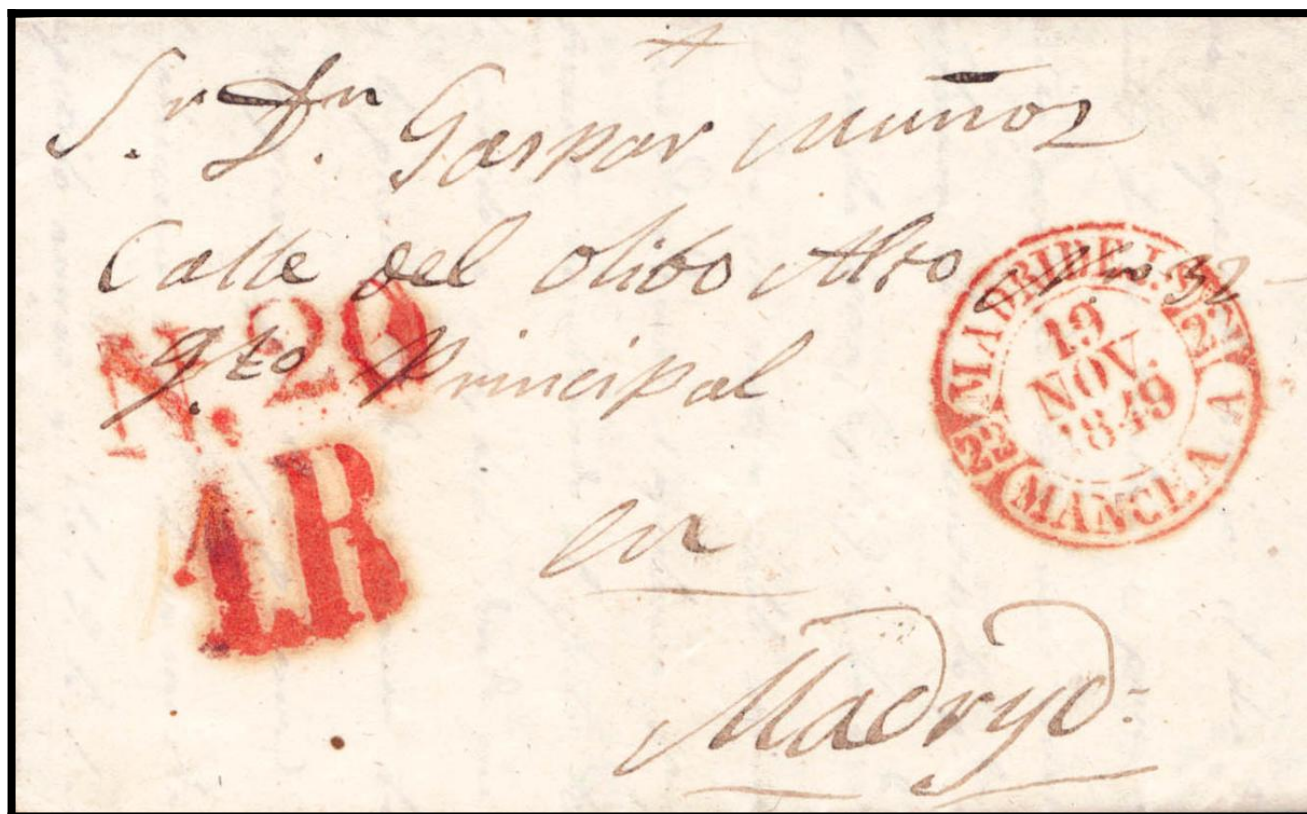 Sr. Dn. Gaspar Muñoz
Calle del olibo Alto Nro 32
qto Principal
en
Madryd.
N.20
1R
MADRIDEJOS
22
19
NOV.
1849
22
MANCHA